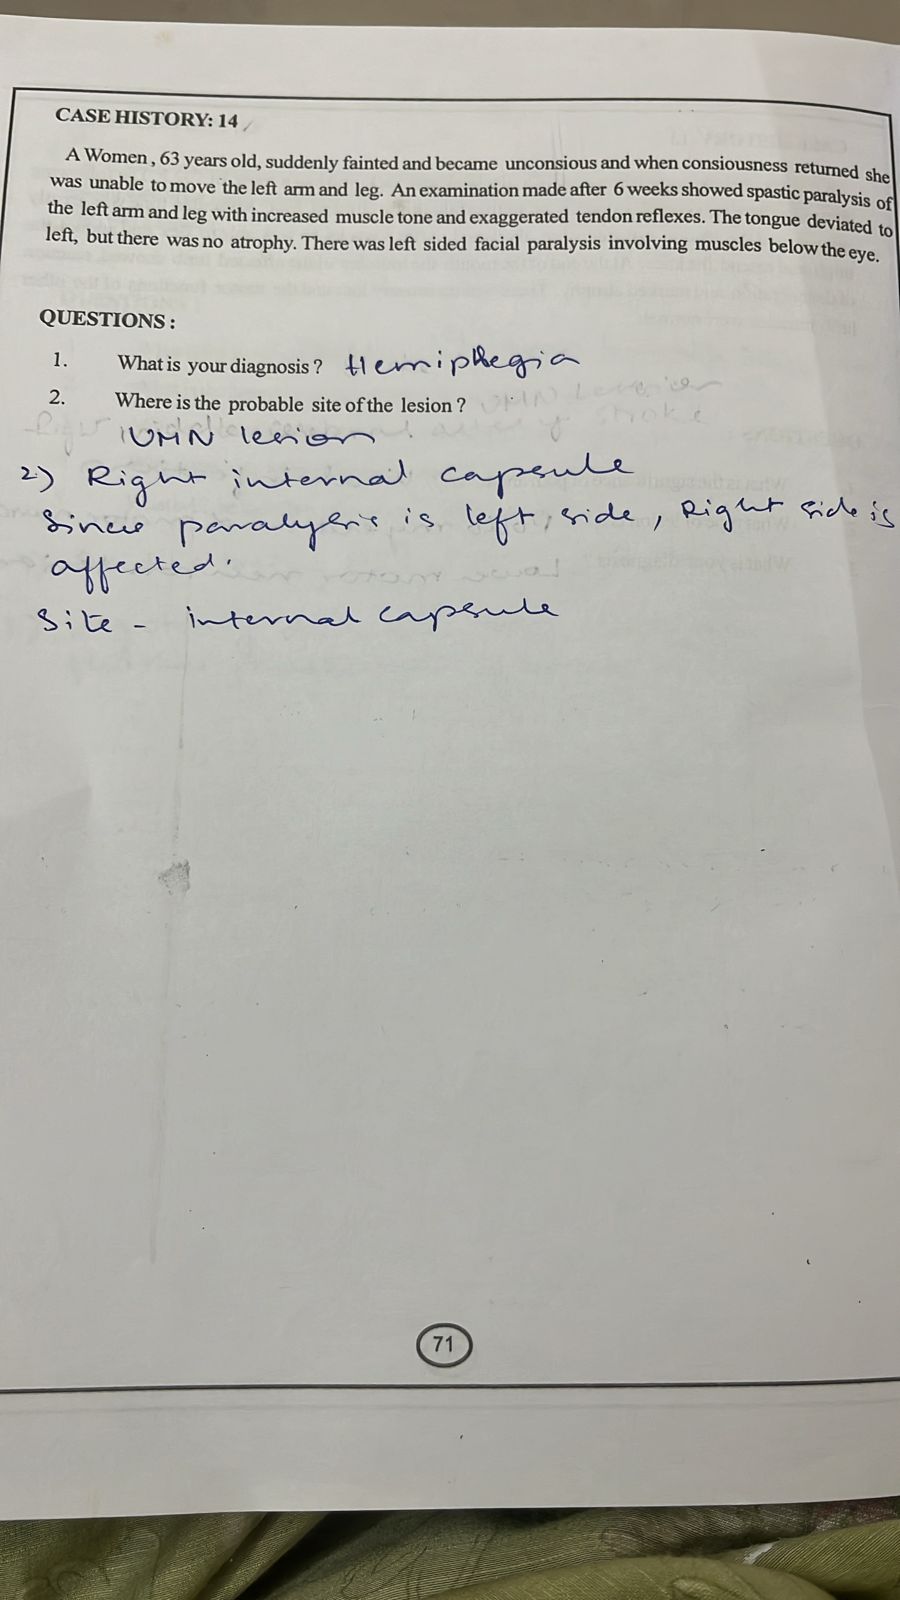 CASE HISTORY: 14
A Women, 63 years old, suddenly fainted and became unconsious and when consiousness returned she
was unable to move the left arm and leg. An examination made after 6 weeks showed spastic paralysis of
the left arm and leg with increased muscle tone and exaggerated tendon reflexes. The tongue deviated to
left, but there was no atrophy. There was left sided facial paralysis involving muscles below the eye.
QUESTIONS :
1. What is your diagnosis ? Hemiplegia
2. Where is the probable site of the lesion ?
UMN lesion
2) Right internal capsule
Since paralysis is left side, Right side is
affected.
Site - internal capsule
71